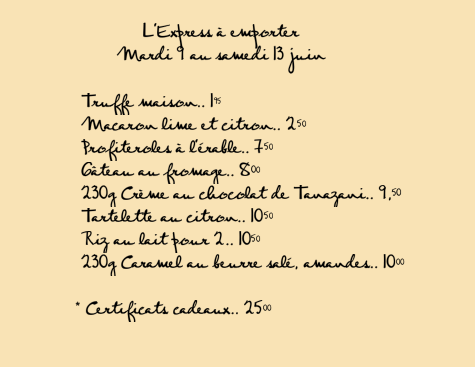 L'Express à emporter
Mardi 9 au samedi 13 juin
Truffe maison.. 1⁹⁵
Macaron lime et citron.. 2⁵⁰
Profiteroles à l'érable.. 7⁵⁰
Gâteau au fromage.. 8⁰⁰
230g Crème au chocolat de Tanazani.. 9,⁵⁰
Tartelette au citron.. 10⁵⁰
Riz au lait pour 2.. 10⁵⁰
230g Caramel au beurre salé, amandes.. 10⁰⁰
* Certificats cadeaux.. 25⁰⁰